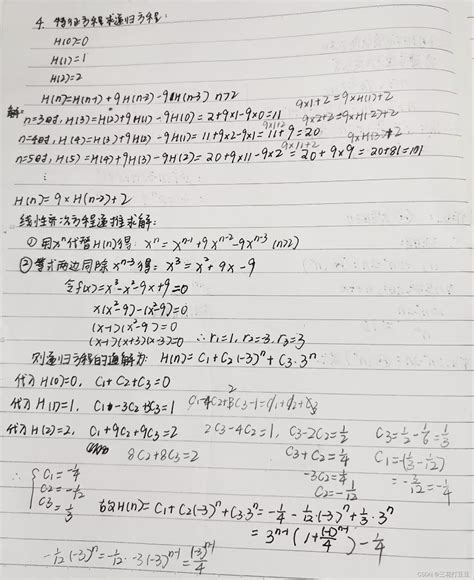 4. 特征方程求递归方程:
H(0)=0
H(1)=1
H(2)=2
H(n)=H(n-1)+9H(n-2)-9H(n-3) n>2
解: n=3时, H(3)=H(2)+9H(1)-9H(0)=2+9×1-9×0=11 9×1+2=9×H(1)+2
n=4时, H(4)=H(3)+9H(2)-9H(1)=11+9×2-9×1=11+9=20 9×2+2=9×H(2)+2
n=5时, H(5)=H(4)+9H(3)-9H(2)=20+9×11-9×2=20+9×9=20+81=101 9×11+2 9×H(3)+2
⋮
H(n)=9×H(n-2)+2
线性齐次方程递推求解:
① 用xⁿ代替H(n)得: xⁿ=xⁿ⁻¹+9xⁿ⁻²-9xⁿ⁻³ (n>2)
② 等式两边同除xⁿ⁻³得: x³=x²+9x-9
令f(x)=x³-x²-9x+9=0
x(x²-9)-(x²-9)=0
(x-1)(x²-9)=0
(x-1)(x+3)(x-3)=0 ∴r₁=1, r₂=-3, r₃=3
则递归方程的通解为: H(n)=C₁+C₂(-3)ⁿ+C₃·3ⁿ
代入H(0)=0, C₁+C₂+C₃=0
代入H(1)=1, C₁-3C₂+3C₃=1
代入H(2)=2, C₁+9C₂+9C₃=2 2C₃-4C₂=1, C₃-2C₂=½ C₃=½-⅙=⅓
8C₂+8C₃=2 C₃+C₂=¼ C₁=-(⅓-1/12)
-3C₂=¼ =-3/12=-¼
C₂=-1/12
∴ { C₁=-¼
C₂=-1/12
C₃=⅓
故H(n)=C₁+C₂(-3)ⁿ+C₃3ⁿ=-¼-1/12·(-3)ⁿ+⅓·3ⁿ
=3ⁿ⁻¹(1+(-1)ⁿ⁻¹/4)-¼
-1/12(-3)ⁿ=-1/12·-3(-3)ⁿ⁻¹=(-3)ⁿ⁻¹/4
CSDN @三花打豆豆